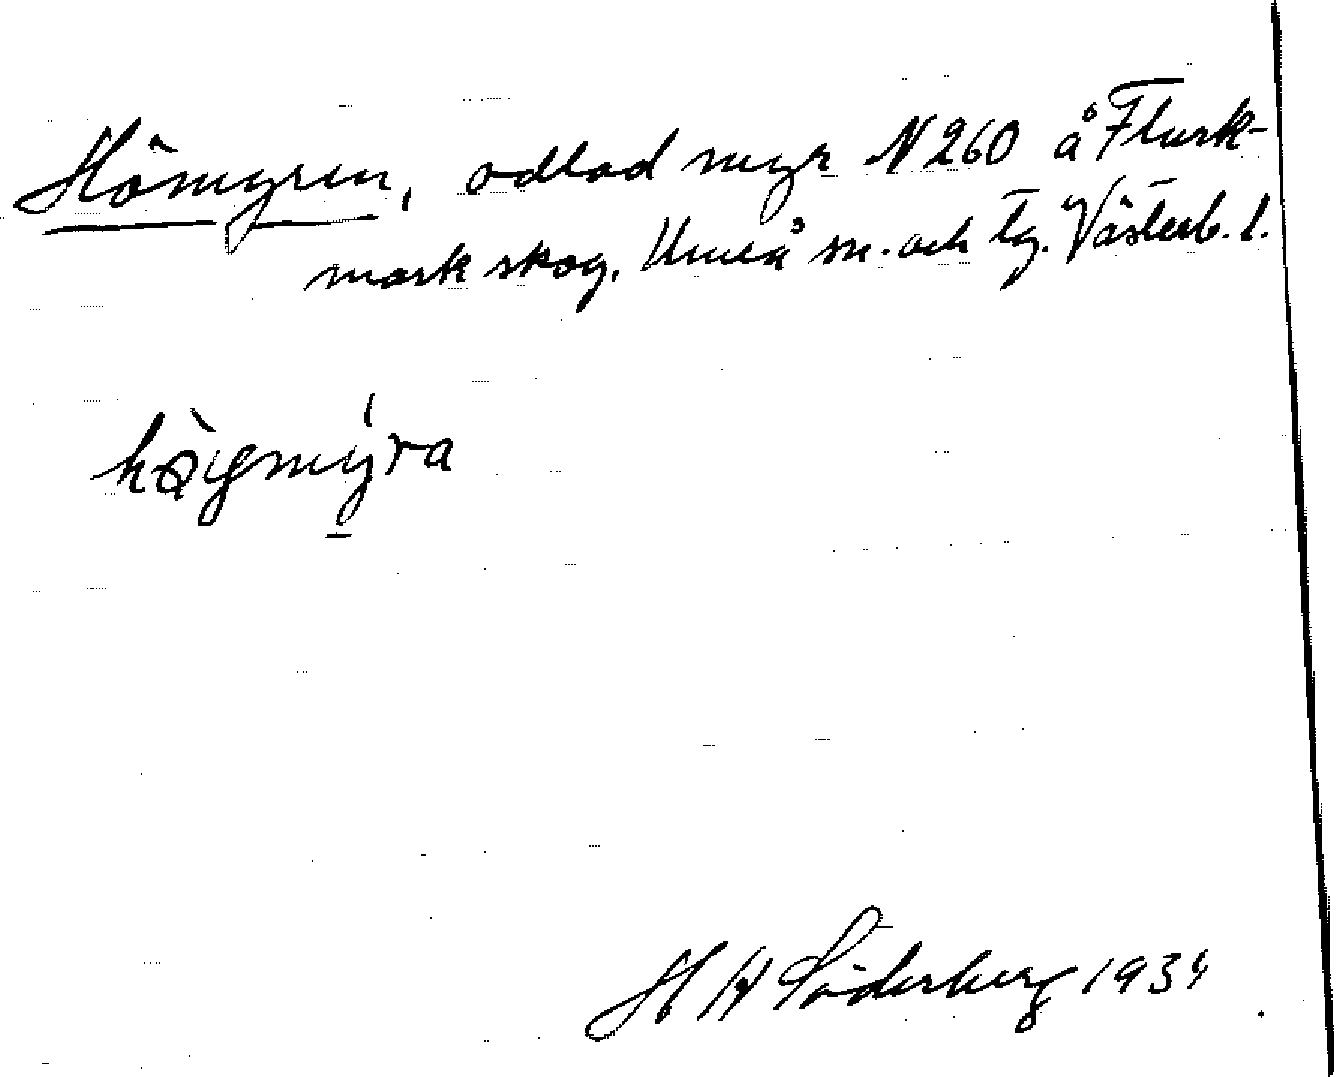 Hömyren, odlad myr N 260 å Flurk-
mark skog, Umeå sn. och tg. Västerb. l.
hògmýra
H W Söderberg 1934